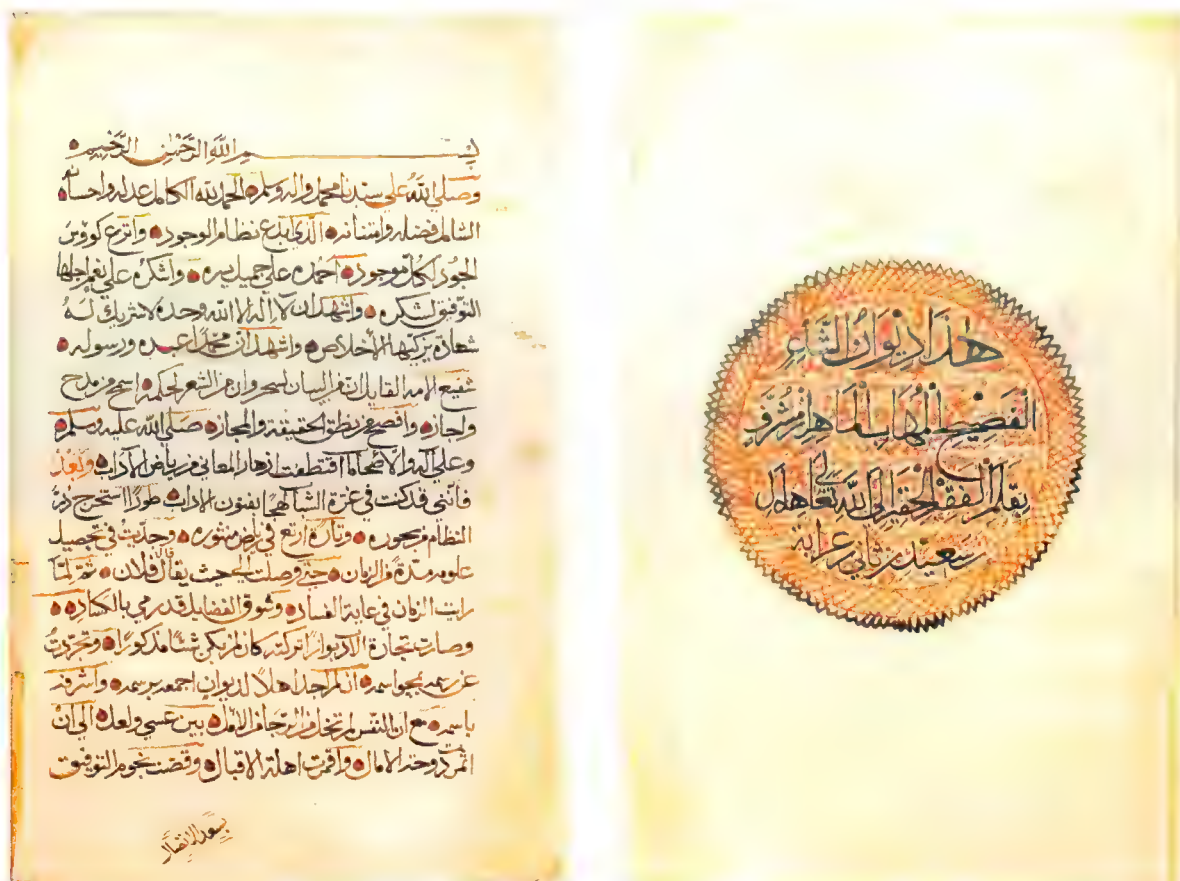 هذا ديوان الشاعر
الفصيح المهاسلما هز مشرف
بقلم الفقير الحقير الى الله تعالى هلال
سعيد بن ثاني عرابه
بسم الله الرحمن الرحيم
وصلي الله علي سيدنا محمد واله وسلم الحمد لله الكامل عدله واحسانه
الشامل فضله وامتنانه الذي ابدع نظام الوجود واترع كووس
الجود لكل موجود احمده علي جميل بره واشكره علي نعم اجلها
التوفيق لشكره واشهد ان لا اله الا الله وحده لا شريك له
شهادة يزكيها الأخلاص واشهد ان محمدا عبده ورسوله
شفيع الامه القايل ان من البيان لسحر وان من الشعر لحكمه اسمح من مدح
واجازه وافصح من نطق الحقيقة والمجازه صلي الله عليه وسلم
وعلي آله والأصحاب ما اقتطفت ازهار المعاني من رياض الآداب وبعد
فانني قد كنت في غرة الشباب لهجا بفنون الاداب طورا استخرج درر
النظام من بحوره وتارة ارتع في رياض منثوره وجديت في تحصيل
علومه مدة من الزمان حتي وصلت الي حيث يقال قال فلان ثم لما
رايت الزمان في غاية الفساد وسوق الفضايل قد رمي بالكساد
وصارت تجارة الادب بوارا تركته كان لم يكن شئا مذكورا وتجردت
عن رسمه بمحو اسمه اذ لم اجد اهلا لديوان اجمعه برسمه واشرفه
باسمه مع ان النفس لم تخل من الرجا من الامل بين عسي ولعل الي ان
اثمرت دوحة الامال واقمرت اهلة الاقبال وقضت نجوم التوفيق
بسعد الاتصال